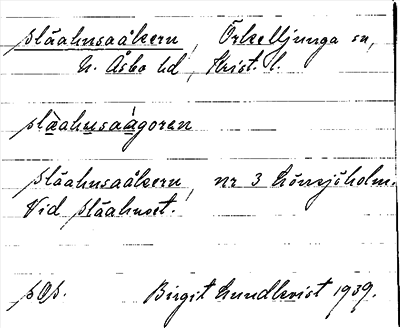 Slåahusaåkern, Örkelljunga sn,
N. Åsbo hd, Krist. l.
slåahusaågoren
Slåahusaåkern, nr 3 Lönsjöholm.
Vid Slåahuset.
1939.
Birgit Lundkvist